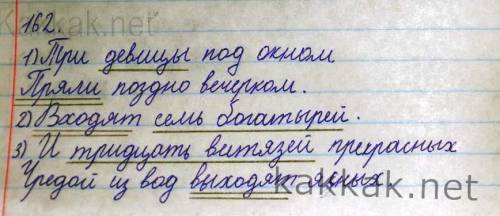 kakkak.net
162.
1) Три девицы под окном
Пряли поздно вечерком.
2) Входят семь богатырей.
3) И тридцать витязей прекрасных
Чредой из вод выходят ясных.
kakkak.net